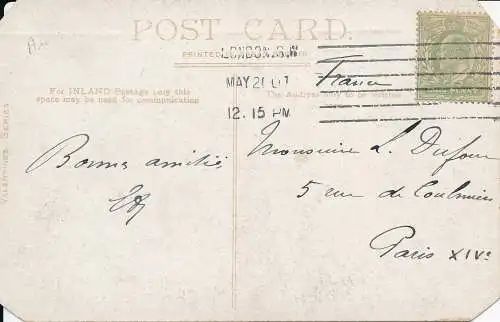 POST CARD.
PRINTED
LONDON. S.W
MAY 21 07
12. 15 PM
France
For INLAND Postage only this
space may be used for communication
The Address only to be written
VALENTINES SERIES
Bonnes amitiés
Monsieur L. Dufour
5 rue de Coulmiers
Paris XIVe